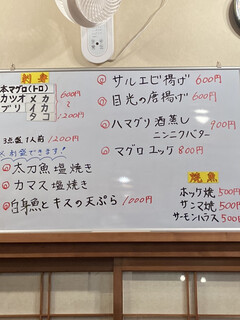 刺身
本マグロ(トロ)
カツオ メカ
ブリ イカ
タコ
600円
〜
1200円
3点盛 1人前 1200円
できます!
◎太刀魚塩焼き
◎カマス塩焼き
◎白身魚とキスの天ぷら 1000円
◎サルエビ揚げ 600円
◎目光の唐揚げ 600円
◎ハマグリ酒蒸し 900円
ニンニクバター
◎マグロユッケ 800円
焼魚
ホッケ焼 500円
サンマ焼 500円
サーモンハラス 500円